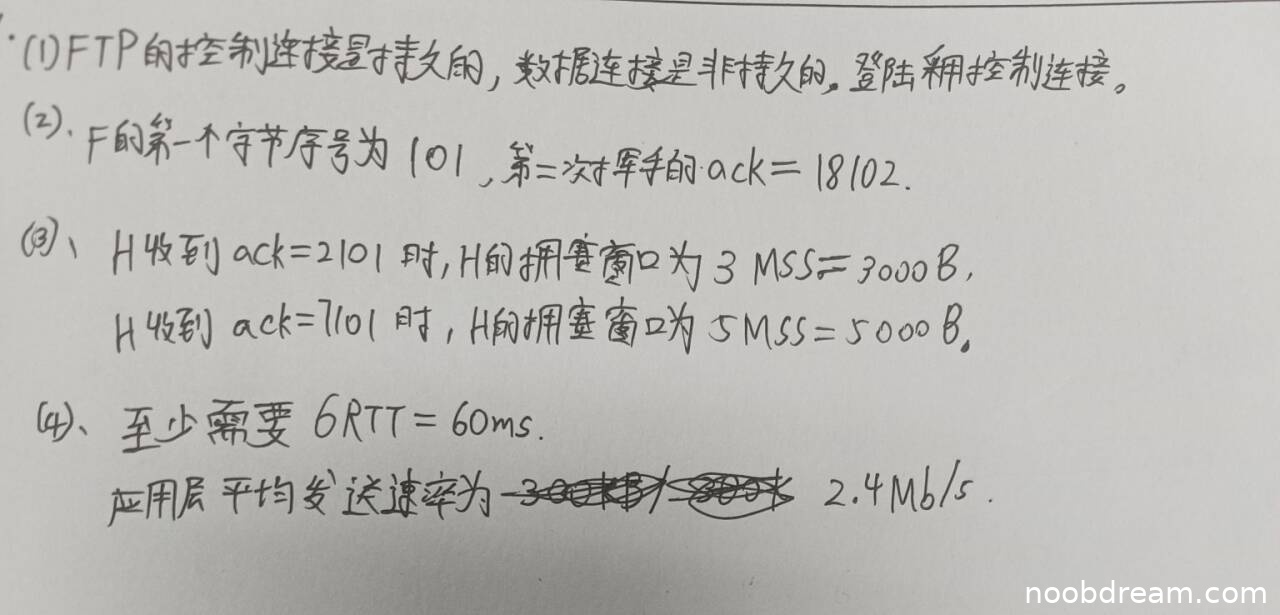 (1)FTP的控制连接是持久的，数据连接是非持久的。登陆采用控制连接。
(2). F的第一个字节序号为101，第二次挥手的ack=18102.
(3)、H收到ack=2101时，H的拥塞窗口为3MSS=3000B，
H收到ack=7101时，H的拥塞窗口为5MSS=5000B。
(4)、至少需要6RTT=60ms.
应用层平均发送速率为 2.4Mb/s.
noobdream.com